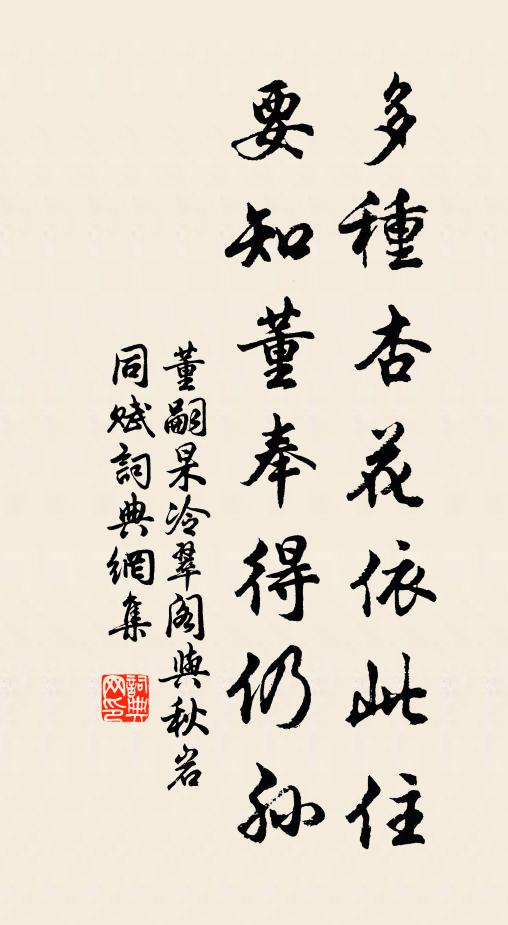 多種杏花依此住
要知董奉得仍孫
董嗣杲冷翠閣與秋岩
同賦詞典網集
詞典
网印